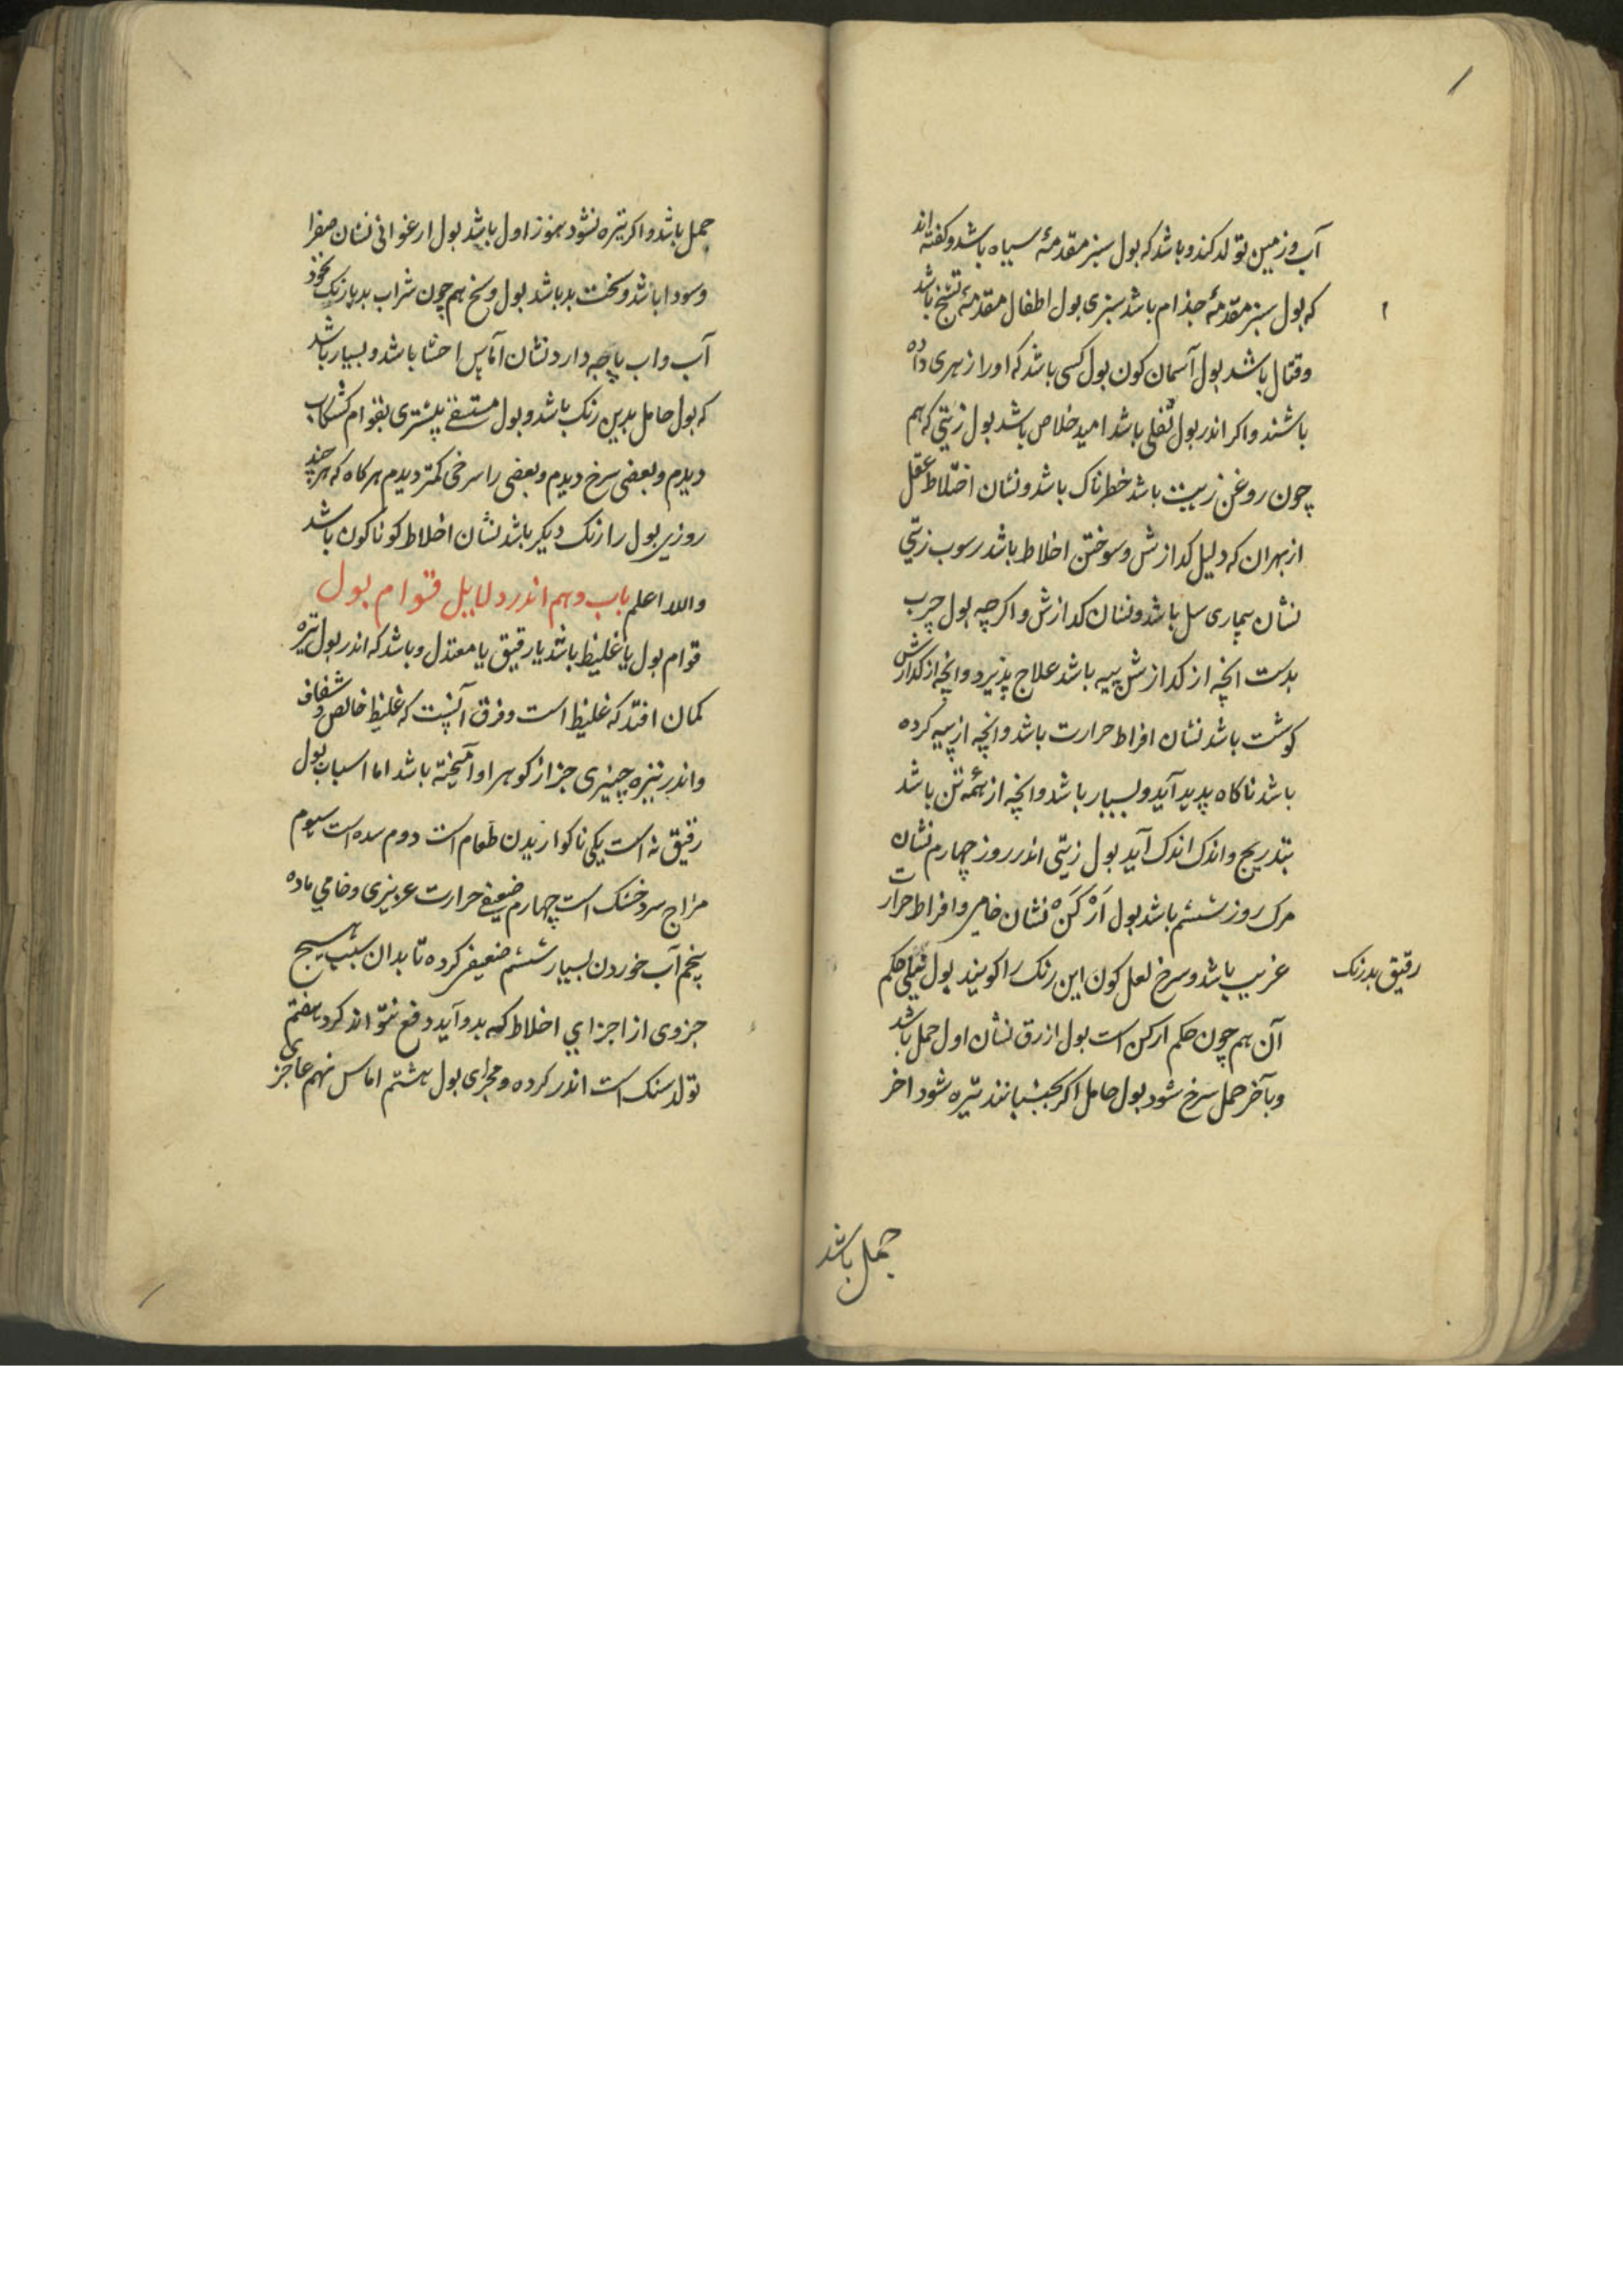 آب و زمین تولد کند و باشد که بول سبز مقدمهٔ سیاه باشد و کفته اند
که بول سبز مقدمهٔ جذام باشد سبزی بول اطفال مقدمهٔ تشنج باشد
وقتال باشد بول آسمان کون بول کسی باشد که او را زهری داده
باشند و اکر اندر بول ثفلی باشد امید خلاص باشد بول زیتی که هم
چون روغن زیت باشد خطرناک باشد و نشان اختلاط عقل
از بهر ان که دلیل کدازش و سوختن اخلاط باشد رسوب زیتی
نشان بیماری سل باشد و نشان کدازش و اکر چه بول چرب
بدست انچه از کدازش پیه باشد علاج پذیرد و انچه از کدازش
کوشت باشد نشان افراط حرارت باشد و انچه از پیه کرده
باشد ناکاه پدید آید و بسیار باشد و انچه از همه تن باشد
بتدریج و اندک اندک آید بول زیتی اندر روز چهارم نشان
مرک روز ششم باشد بول ارکن نشان خامی و افراط حرارت
غریب باشد و سرخ لعل کون این رنک را کویند بول نیلی حکم
رقیق بد رنک
آن هم چون حکم ارکن است بول ازرق نشان اول حمل باشد
و بآخر حمل سرخ شود بول حامل اکر بجنبانند تیره شود اخر
حمل باشد
حمل باشد و اکر تیره نشود هنوز اول باشد بول ارغوانی نشان صفرا
و سودا باشد و سخت بد باشد بول وسخ هم چون شراب بد یا رنک نخود
آب و اب پاچه دارد نشان آماس احشا باشد و بسیار باشد
که بول حامل بدین رنک باشد و بول مستسقی بیشتری بقوام کشکاب
دیدم و بعضی سرخ دیدم و بعضی را سرخی کمتر دیدم هرکاه که هر چند
روزی بول را رنک دیکر باشد نشان اخلاط کوناکون باشد
والله اعلم باب دهم اندر دلایل قوام بول
قوام بول یا غلیظ باشد یا رقیق یا معتدل و باشد که اندر بول تیره
کمان افتد که غلیظ است و فرق آنست که غلیظ خالص و شفاف
و اندر تیره چیزی جز از کوهر او آمیخته باشد اما اسباب بول
رقیق نه است یکی ناکواریدن طعام است دوم سده است سیوم
مزاج سرد خشک است چهارم ضعیفی حرارت عریزی و خامی ماده
پنجم آب خوردن بسیار ششم ضعیفی کرده تا بدان سبب هیچ
جزوی از اجزای اخلاط که بدو آید دفع نتواند کرد هفتم
تولد سنک است اندر کرده و مجرای بول هشتم اماس نهم عاجزی